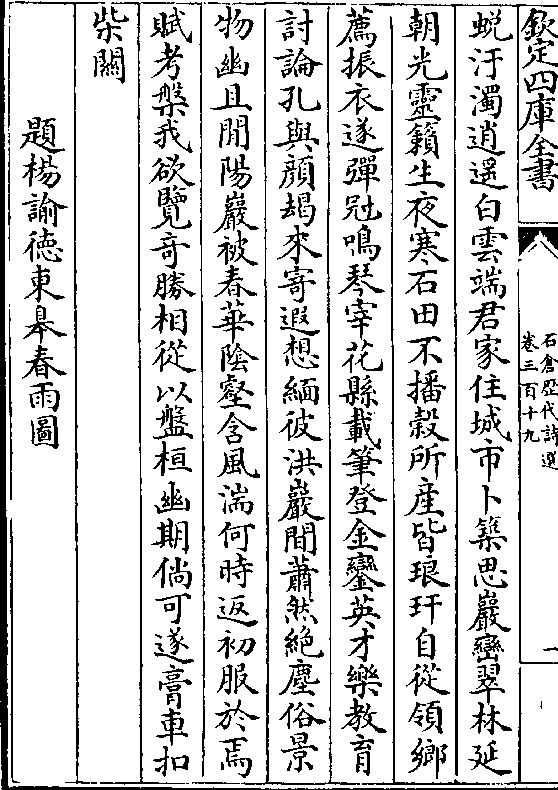 欽定四庫全書
石倉歷代詩選
卷三百十九
一
蛻汙濁逍遥白雲端君家住城市卜築思巖巒翠林延
朝光靈籟生夜寒石田不播榖所産皆琅玕自從領鄉
薦振衣遂彈冠鳴琴宰花縣載筆登金鑾英才樂教育
討論孔與顔朅來寄遐想緬彼洪巖間蕭然絶塵俗景
物幽且閒陽巖被春華陰壑含風湍何時返初服於焉
賦考槃我欲覽竒勝相從以盤桓幽期倘可遂膏車扣
柴闗
題楊諭德東臯春雨圖